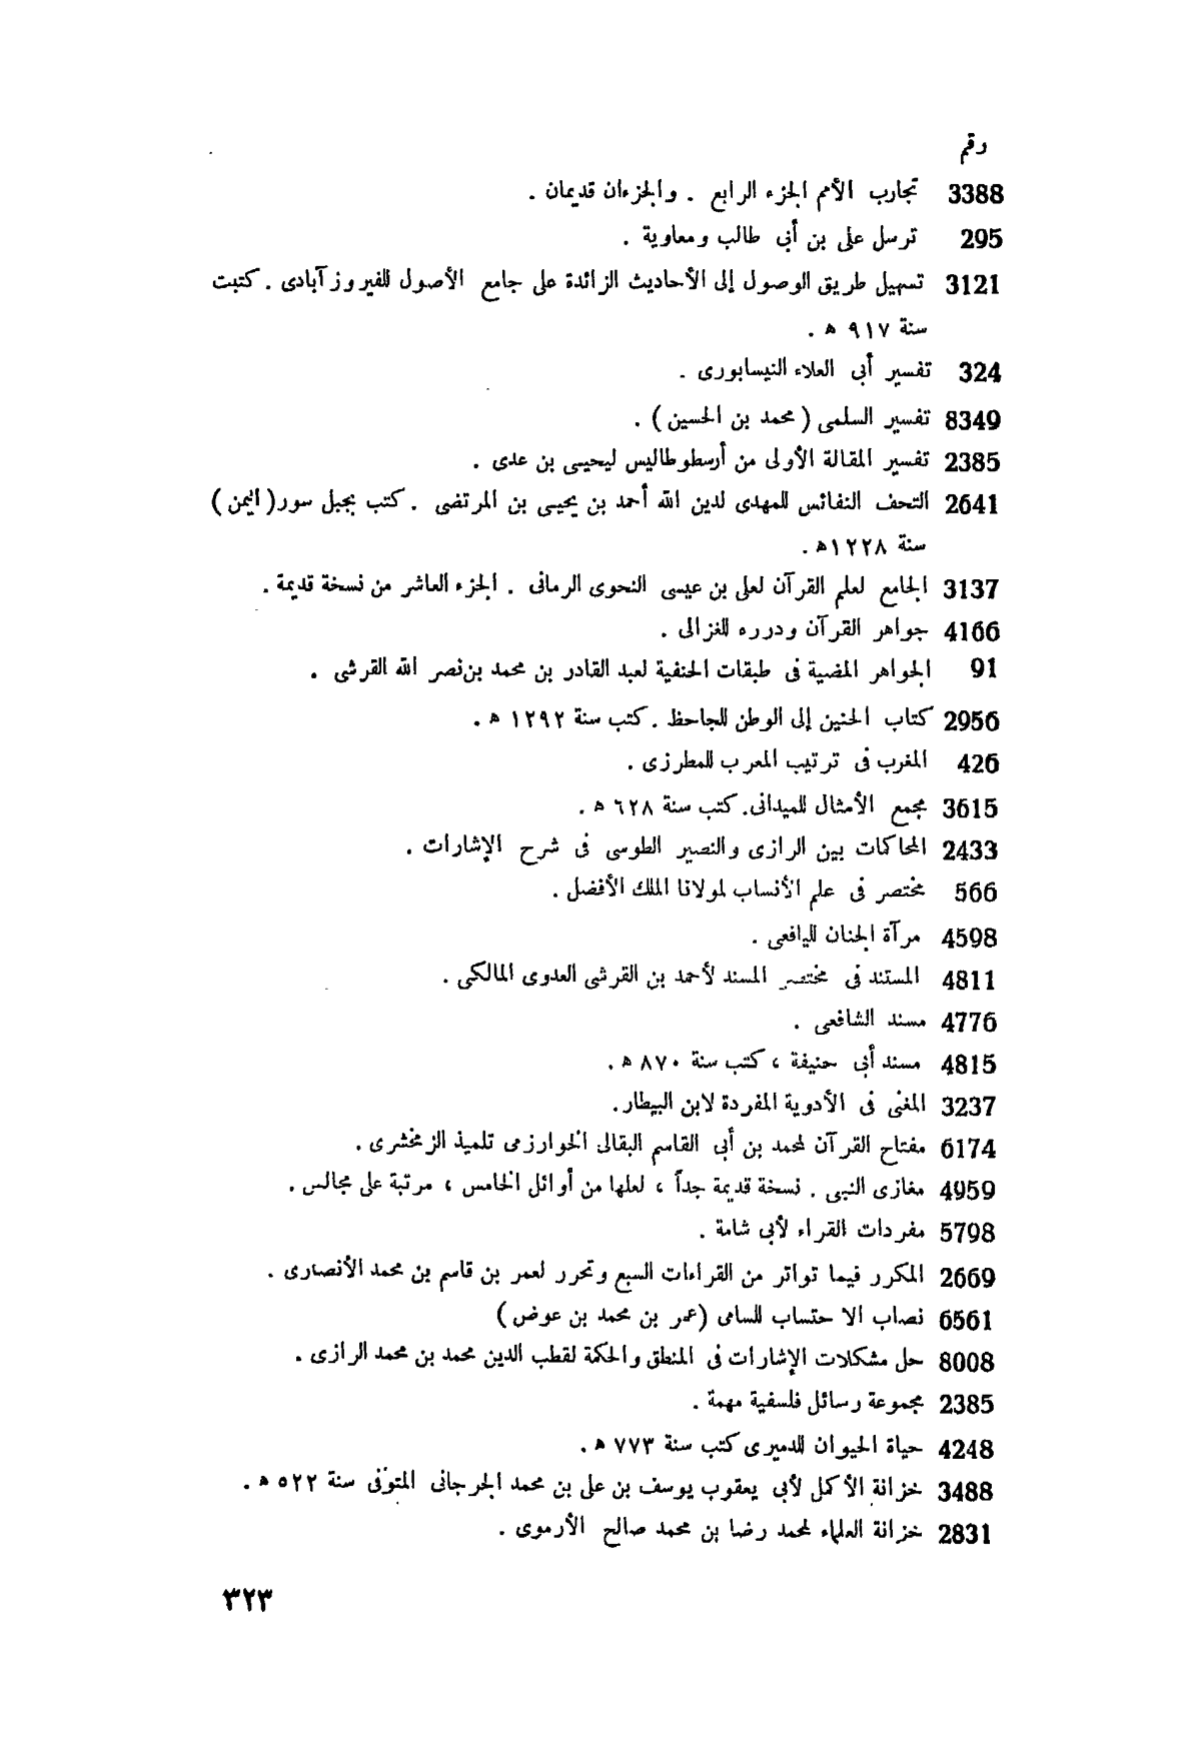 رقم
3388 تجارب الأمم الجزء الرابع . والجزءان قديمان .
295 ترسل على بن أبى طالب ومعاوية .
3121 تسهيل طريق الوصول إلى الأحاديث الزائدة على جامع الأصول للفيروزآبادى . كتبت
سنة ٩١٧ ه .
324 تفسير أبى العلاء النيسابورى .
8349 تفسير السلمى ( محمد بن الحسين ) .
2385 تفسير المقالة الأولى من أرسطوطاليس ليحيى بن عدى .
2641 التحف النفائس للمهدى لدين الله أحمد بن يحيى بن المرتضى . كتب بجبل سور( اليمن )
سنة ١٢٢٨ه .
3137 الجامع لعلم القرآن لعلى بن عيسى النحوى الرمانى . الجزء العاشر من نسخة قديمة .
4166 جواهر القرآن ودرره للغزالى .
91 الجواهر المضية فى طبقات الحنفية لعبد القادر بن محمد بن نصر الله القرشى .
2956 كتاب الحنين إلى الوطن للجاحظ . كتب سنة ١٢٩٢ ه .
426 المغرب فى ترتيب المعرب للمطرزى .
3615 مجمع الأمثال للميدانى. كتب سنة ٦٢٨ ه .
2433 المحاكمات بين الرازى والنصير الطوسى فى شرح الإشارات .
566 مختصر فى علم الأنساب لمولانا الملك الأفضل .
4598 مرآة الجنان لليافعى .
4811 المستند فى مختصر المسند لأحمد بن القرشى العدوى المالكى .
4776 مسند الشافعى .
4815 مسند أبى حنيفة ، كتب سنة ٨٧٠ ه .
3237 المغنى فى الأدوية المفردة لابن البيطار.
6174 مفتاح القرآن لمحمد بن أبى القاسم البقالى الخوارزمى تلميذ الزمخشرى .
4959 مغازى النبى . نسخة قديمة جداً ، لعلها من أوائل الخامس ، مرتبة على مجالس .
5798 مفردات القراء لأبى شامة .
2669 المكرر فيما تواتر من القراءات السبع وتحرر لعمر بن قاسم بن محمد الأنصارى .
6561 نصاب الاحتساب للسامى (عمر بن محمد بن عوض )
8008 حل مشكلات الإشارات فى المنطق والحكمة لقطب الدين محمد بن محمد الرازى .
2385 مجموعة رسائل فلسفية مهمة .
4248 حياة الحيوان للدميرى كتب سنة ٧٧٣ ه .
3488 خزانة الأكمل لأبى يعقوب يوسف بن على بن محمد الجرجانى المتوفى سنة ٥٢٢ ه .
2831 خزانة العلماء لمحمد رضا بن محمد صالح الأرموى .
٣٢٣